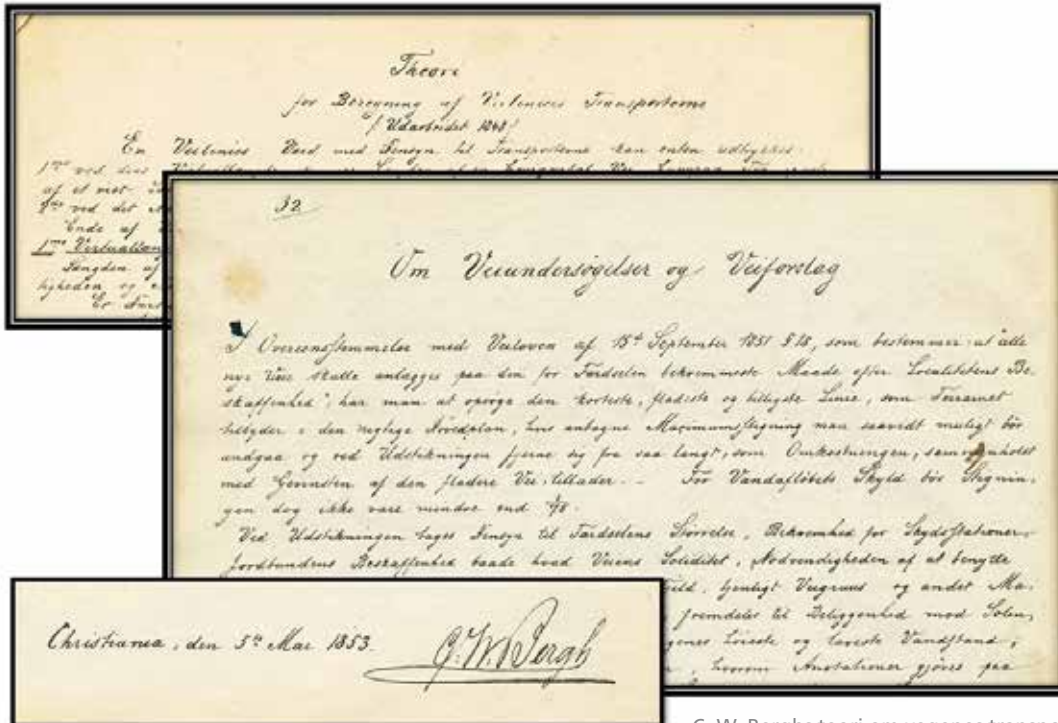 Theori
for Beregning af Veiliniers Transportevne
/ Udarbeidet 1848 /
En Veilinies Værd med Hensyn til Transportevne kan enten udtrykkes
1mo ved dens
af et vist
2do ved det
Ende af
1mo Virtuallæng
Længden af
ligheden og
Er
32
Om Veiundersøgelser og Veiforslag
I Overensstemmelse med Veiloven af 15de September 1851 § 18, som bestemmer "at alle
nye Veie skulle anlægges paa den for Færdselen bekvemmeste Maade efter Localitetens Be-
skaffenhed", har man at opsøge den korteste, fladeste og billigste Linie, som Terrainet
tilbyder i den rigtige Hovedplan, hvis antagne Maximumsstigning man saavidt muligt bør
undgaa og ved Udstikningen fjerne sig fra saa langt, som Omkostningen, sammenholdt
med Gevinsten af den fladere Vei, tillader. – For Vandafløbets Skyld bør Stignin-
gen dog ikke være mindre end
Ved Udstikningen tages Hensyn til Færdselens Størrelse, Bekvemhed for Skydsstationer,
Jordbundens Beskaffenhed baade hvad Veiens Soliditet, Nødvendigheden af at benytte
Fjeld, tjenligt Veigruus og andet Ma-
fremdeles til Beliggenhed mod Solen,
høieste og laveste Vandstand,
, hvorom Anotationer gjøres paa
Christiania, den 5te Mai 1853.
C. W. Bergh